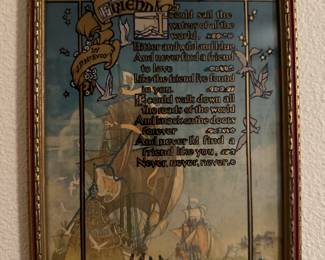 FRIEND
BY
J.P. McEVOY
I could sail the
waters of all the
world,
Bitter and wild and blue,
And never find a friend
to love
Like the friend I've found
in you.
I could walk down all
the roads of the world
And knock on the doors
forever
And never I'd find a
friend like you,
Never, never, never.